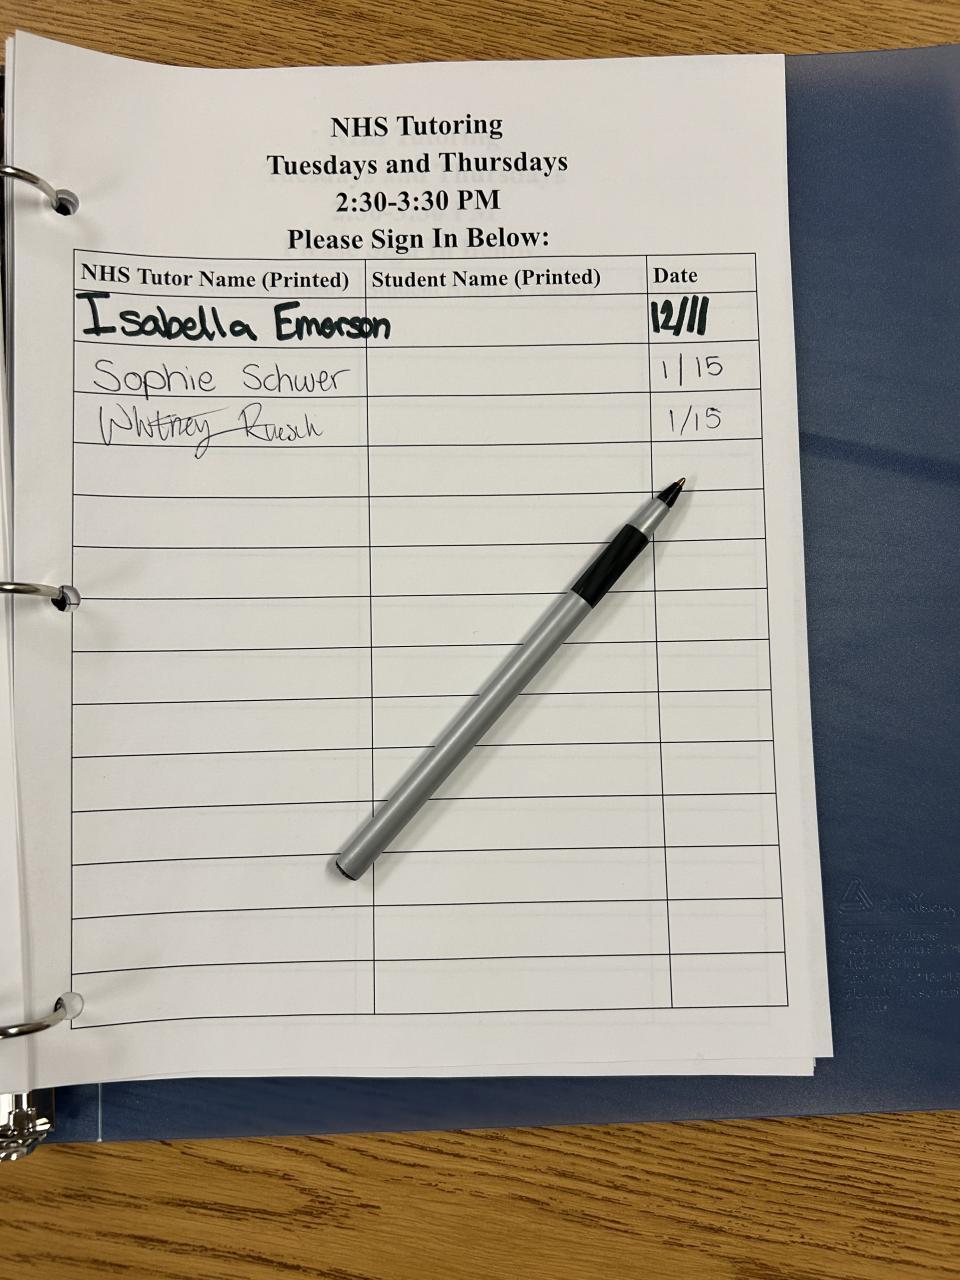 NHS Tutoring
Tuesdays and Thursdays
2:30-3:30 PM
Please Sign In Below:
NHS Tutor Name (Printed) Student Name (Printed) Date
Isabella Emerson 12/11
Sophie Schwer 1/15
Whitney 1/15